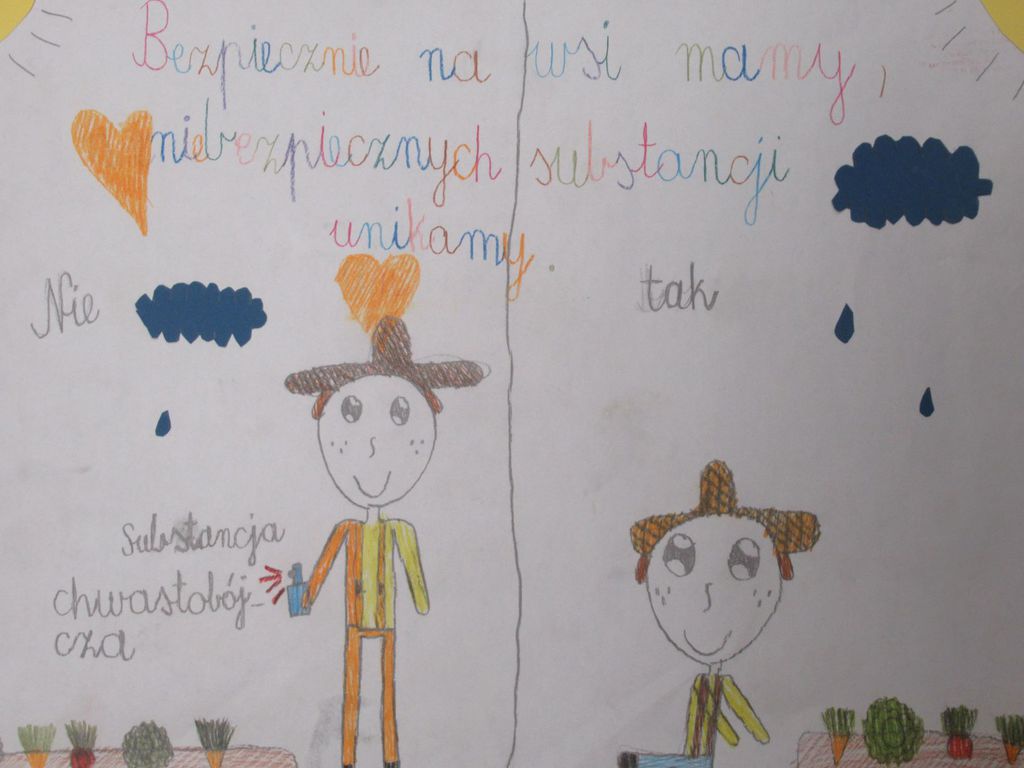 Bezpiecznie na wsi mamy,
niebezpiecznych substancji
unikamy.
Nie
tak
substancja
chwastobój-
cza